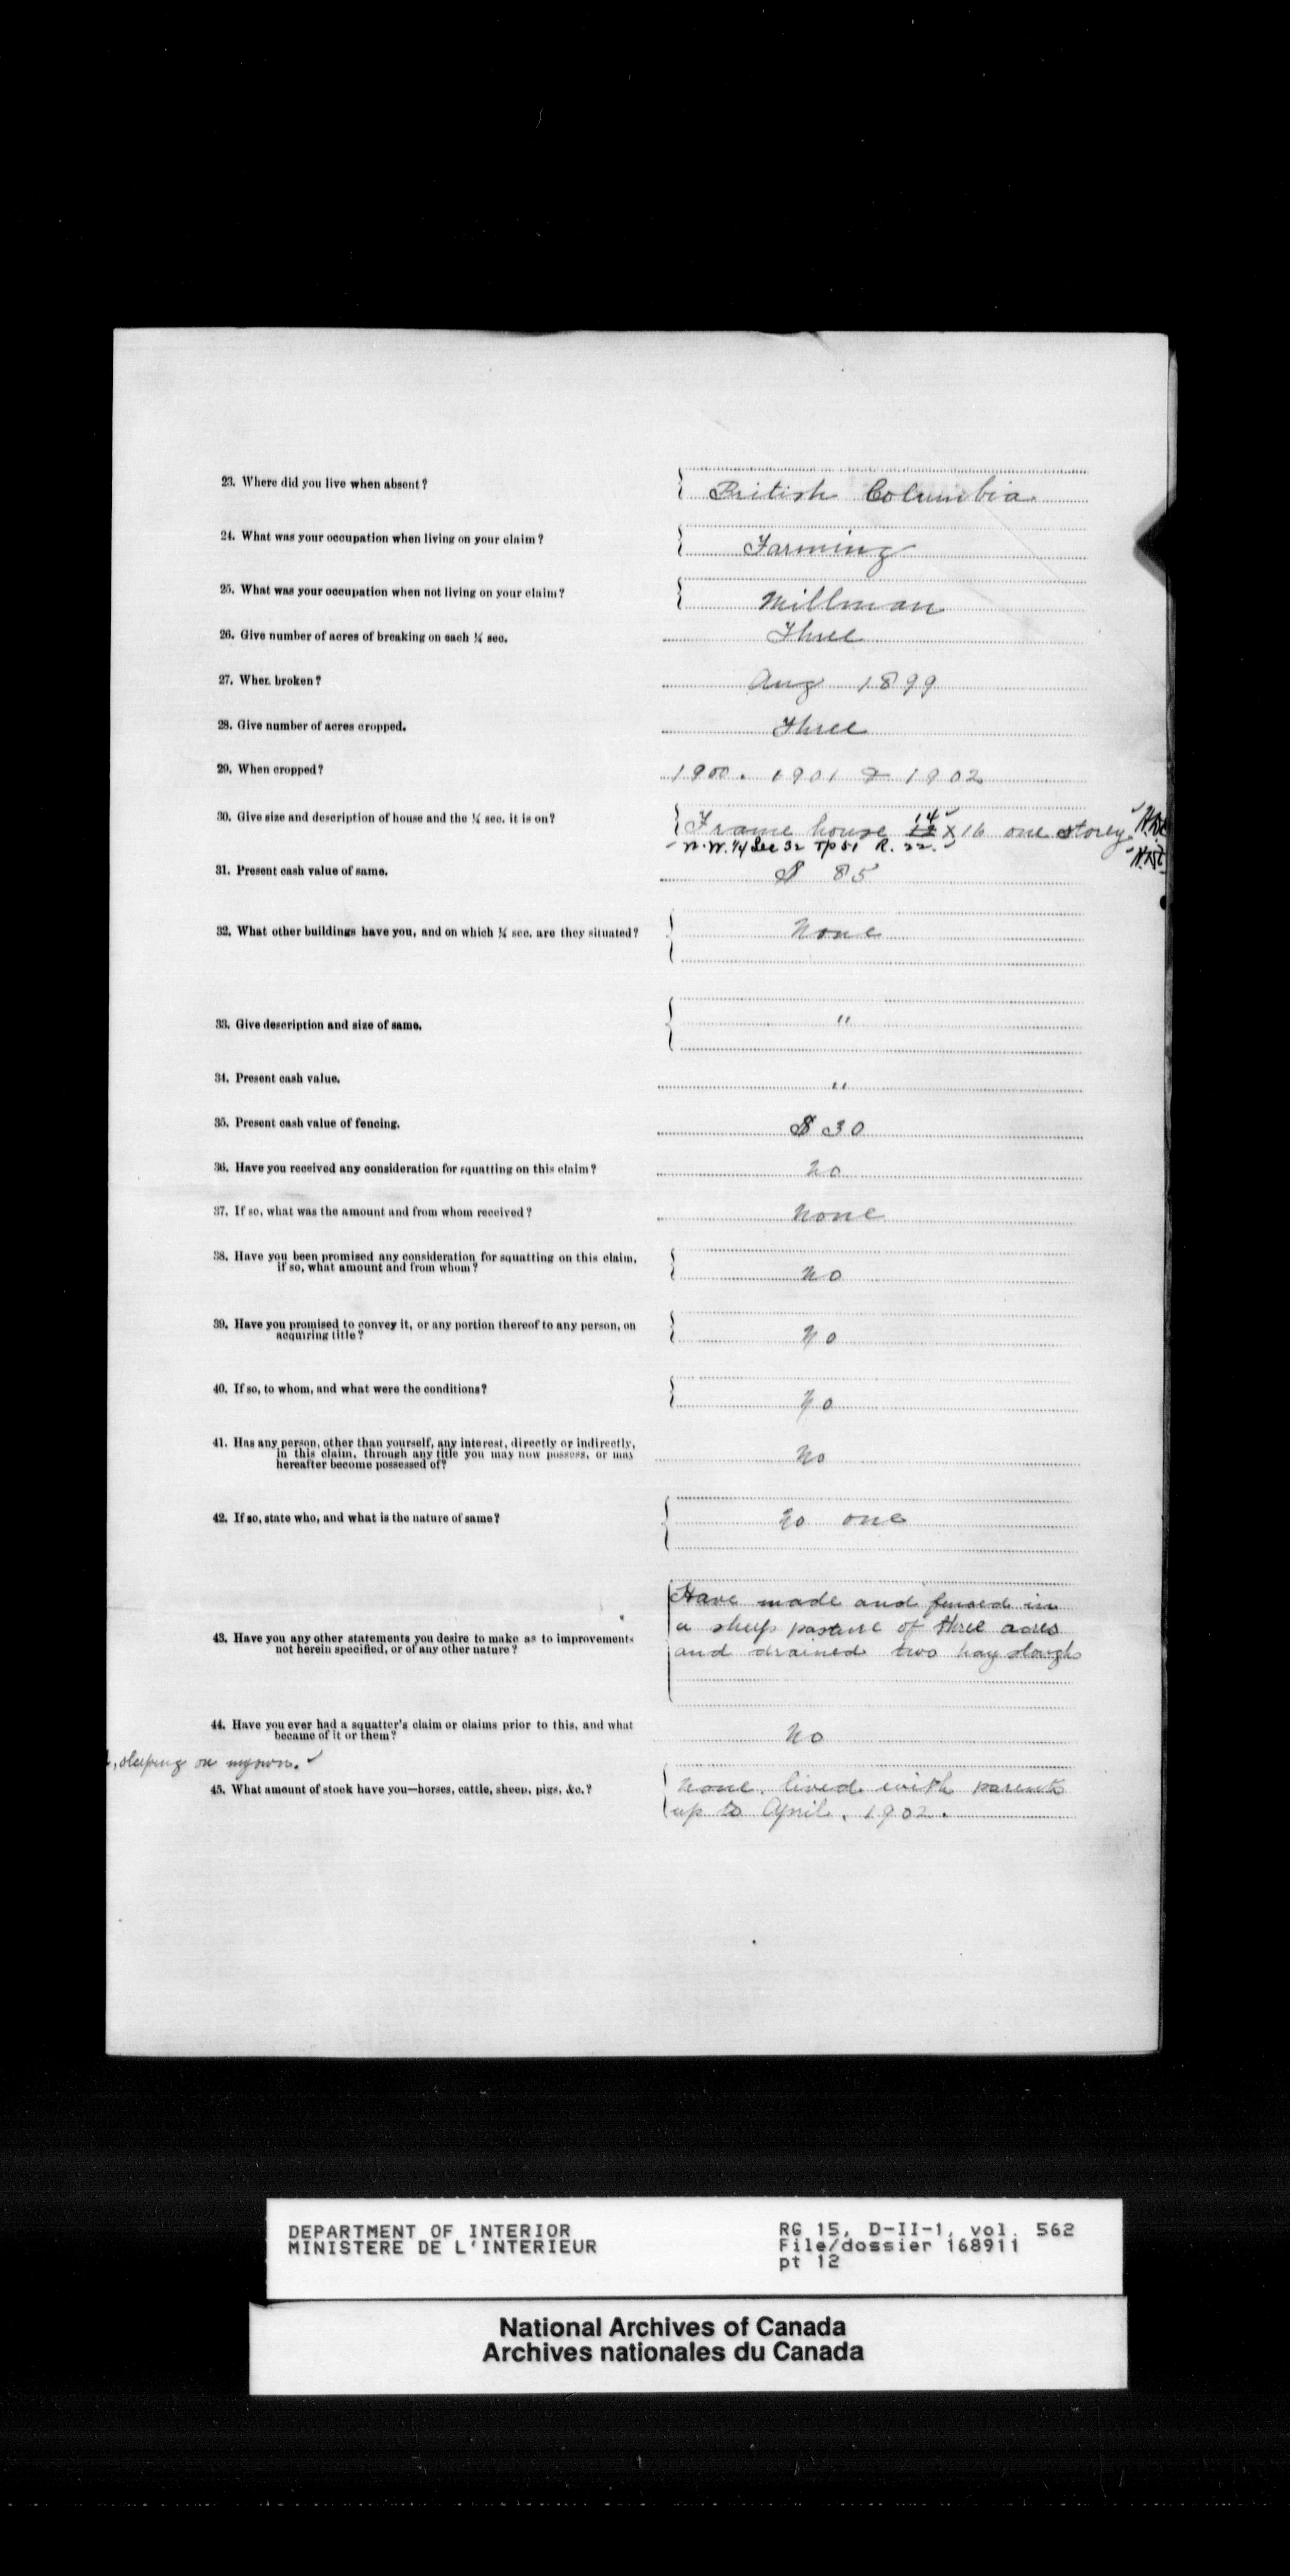 23. Where did you live when absent? British Columbia
24. What was your occupation when living on your claim? Farming
25. What was your occupation when not living on your claim? Millman
26. Give number of acres of breaking on each ¼ sec. Three
27. When broken? Aug 1899
28. Give number of acres cropped. Three
29. When cropped? 1900. 1901 & 1902
30. Give size and description of house and the ¼ sec. it is on? Frame house 12 14 x 16 one storey
N.W. 1/4 Sec 32 Tp 51 R. 22.
31. Present cash value of same. $ 85
32. What other buildings have you, and on which ¼ sec. are they situated? None
33. Give description and size of same. "
34. Present cash value. "
35. Present cash value of fencing. $ 30
36. Have you received any consideration for squatting on this claim? No
37. If so, what was the amount and from whom received? None
38. Have you been promised any consideration for squatting on this claim,
if so, what amount and from whom? No
39. Have you promised to convey it, or any portion thereof to any person, on
acquiring title? No
40. If so, to whom, and what were the conditions? No
41. Has any person, other than yourself, any interest, directly or indirectly,
in this claim, through any title you may now possess, or may
hereafter become possessed of? No
42. If so, state who, and what is the nature of same? No one
Have made and fenced in
a sheep pasture of three acres
43. Have you any other statements you desire to make as to improvements
not herein specified, or of any other nature? and drained two hay slough
44. Have you ever had a squatter's claim or claims prior to this, and what
became of it or them? No
, sleeping on my own.
45. What amount of stock have you—horses, cattle, sheep, pigs, &c.? None. lived with parents
up to April, 1902.
DEPARTMENT OF INTERIOR
MINISTERE DE L'INTERIEUR
RG 15, D-II-1, vol. 562
File/dossier 168911
pt 12
National Archives of Canada
Archives nationales du Canada